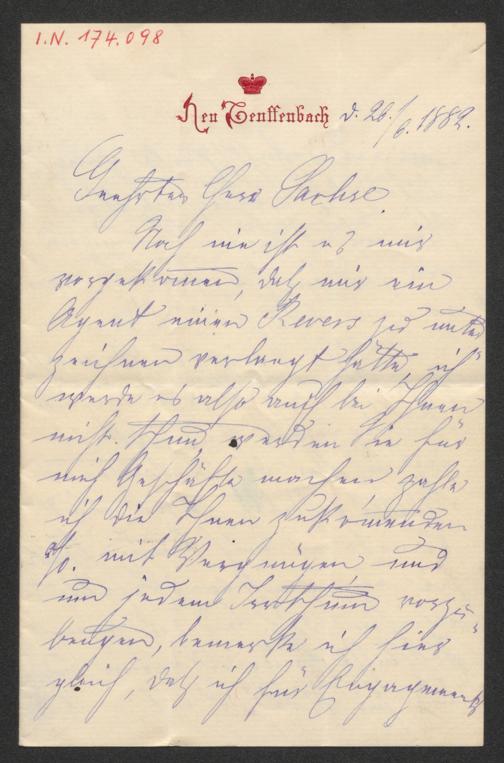 I.N. 174.098
Neu Teuffenbach d. 26./6. 1882.
Geehrter Herr Sachse
Noch nie ist es mir
vorgekommen, daß mir ein
Agent einen Revers zu unter
zeichnen verlangt hätte, ich
werde es also auch bei Ihnen
nicht thun, werden Sie für
mich Geschäfte machen, zahle
ich die Ihnen zukommenden
%. mit Vergnügen und
um jedem Irrthum vorzu=
beugen, bemerke ich hier
gleich, daß ich für Engagements